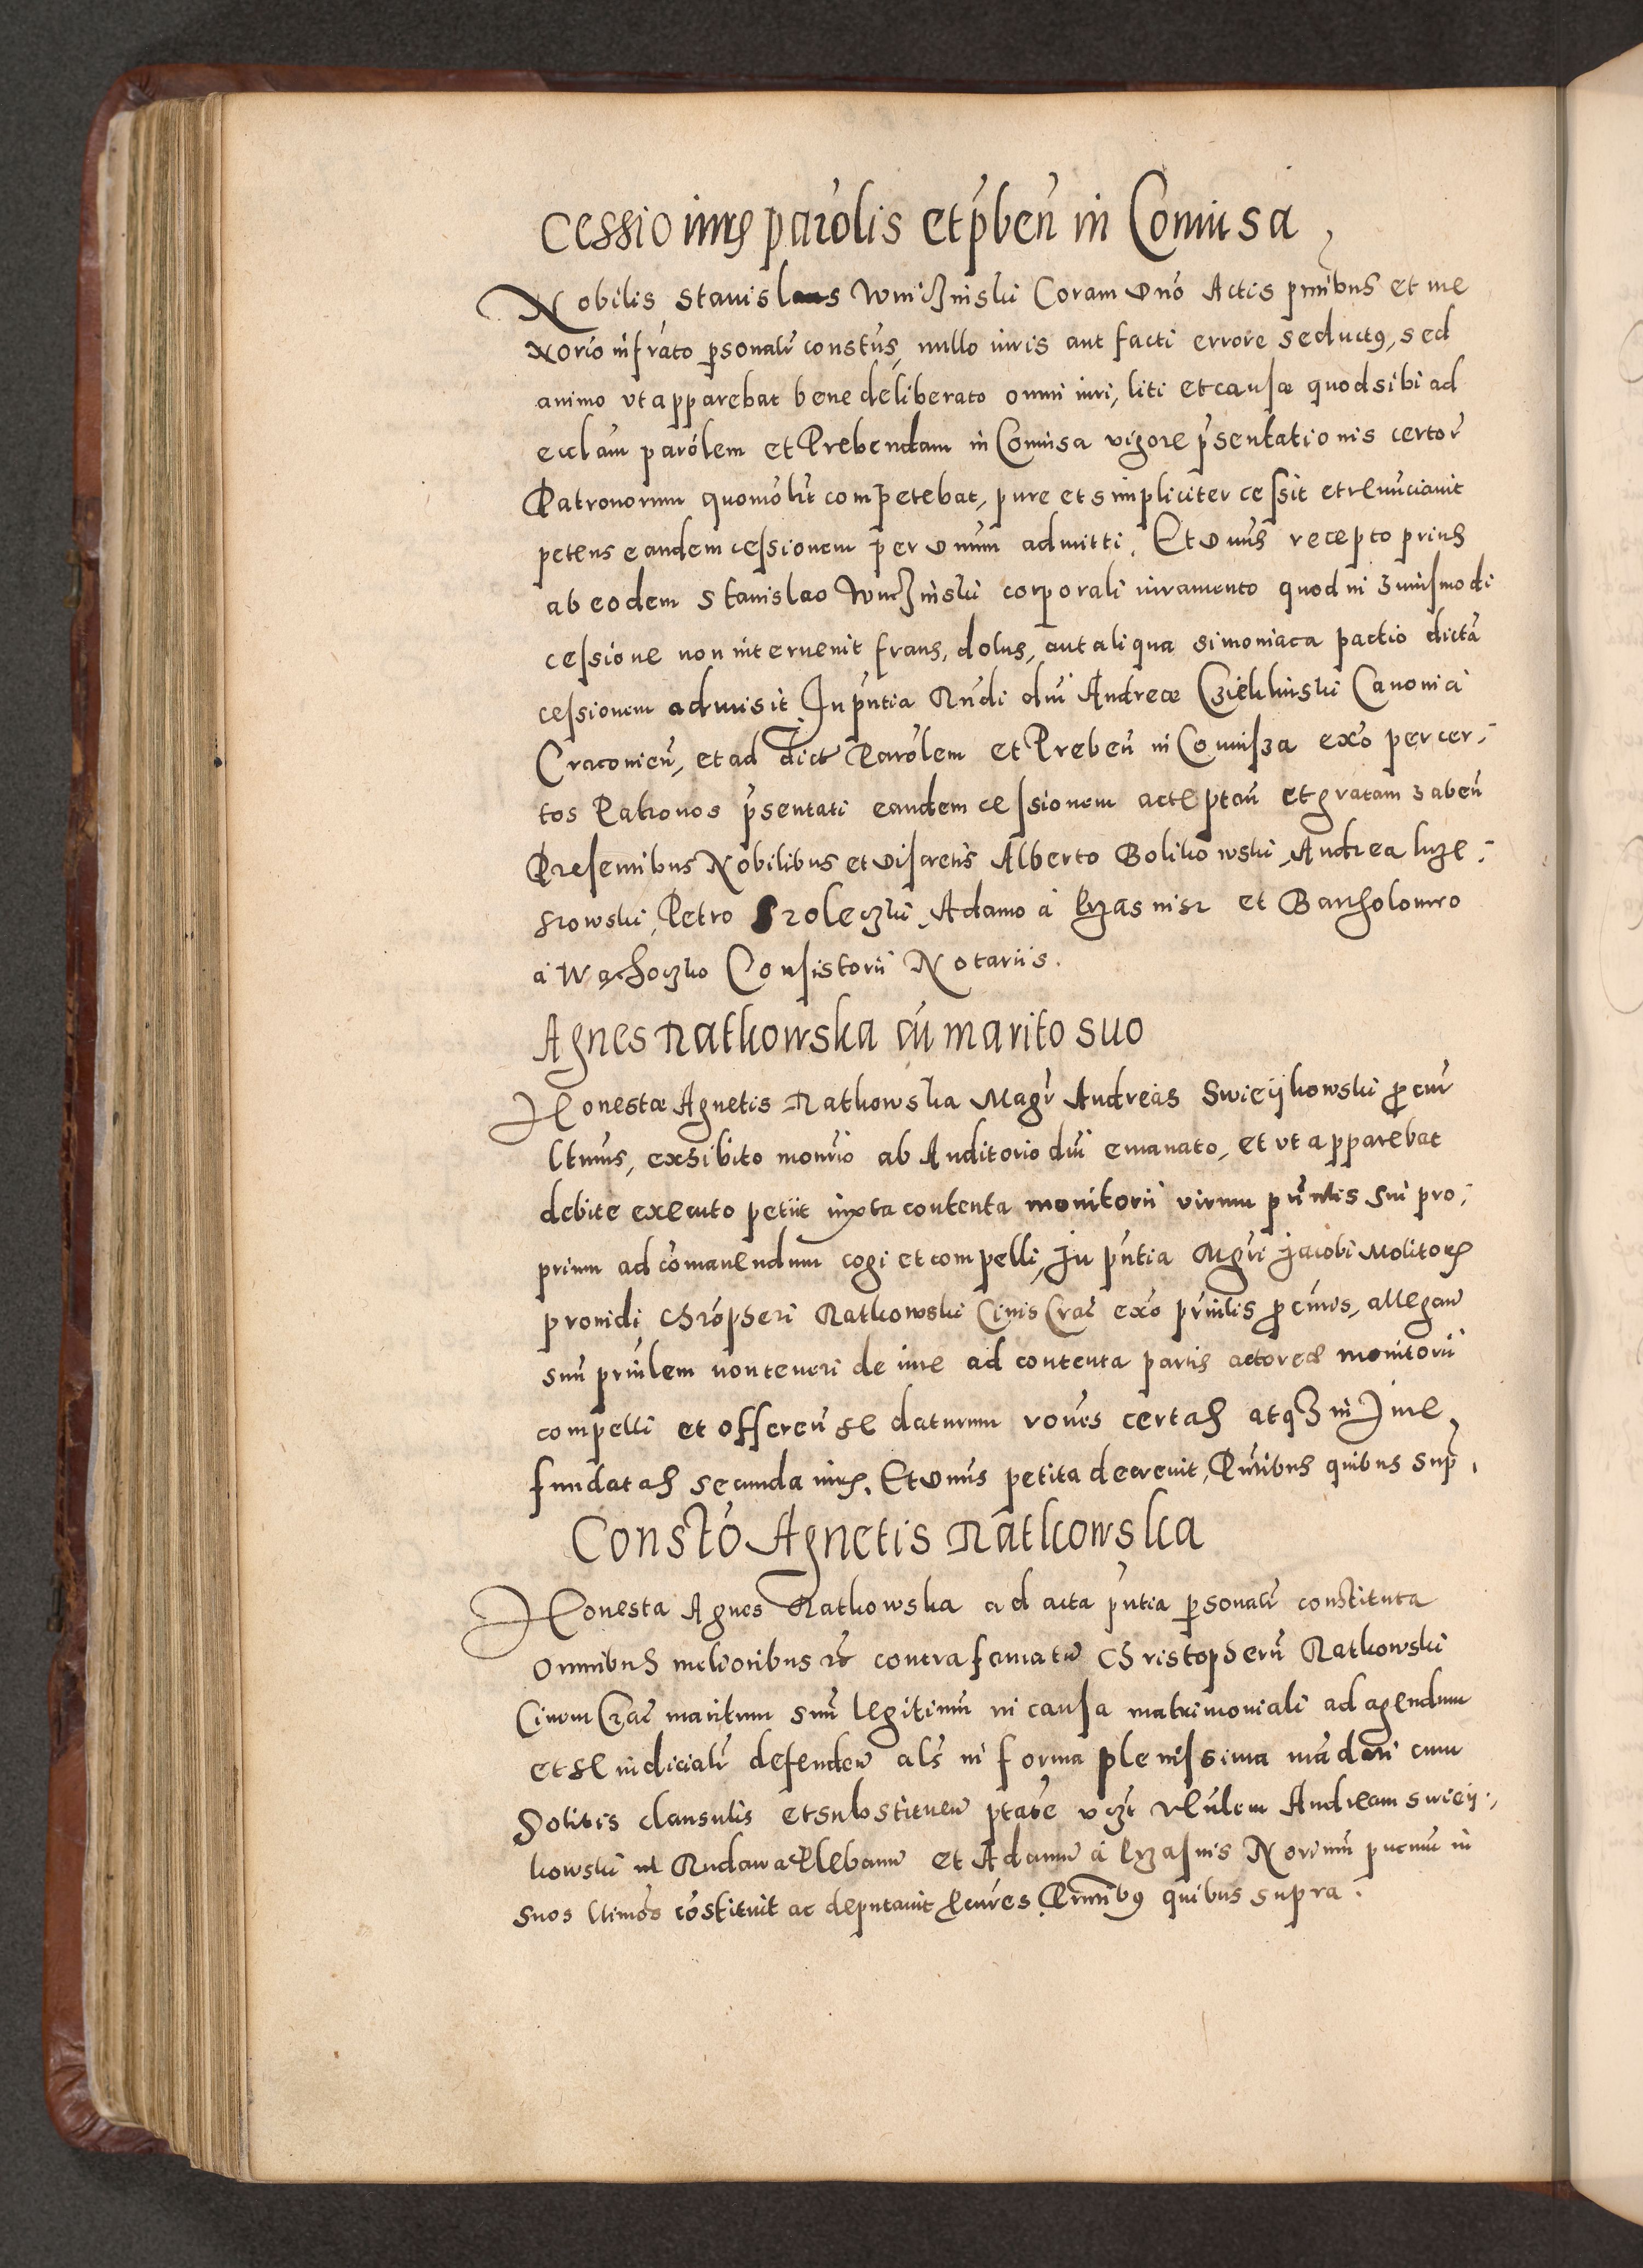 Cessio iuris paro͞lis et p͞ben͞ in Comisa
Nobilis Stanislaus Wniczinski Coram D͞no Actis p͞ntibus et me
No͞rio infra͞to p͞sonal͞r const͞us, nullo iuris aut facti errore seductus, sed
animo vt apparebat bene deliberato omni iuri, liti et causæ quod sibi ad
eccl͞am paro͞lem et Prebendam in Comisa vigore p͞sentationis certor͞
Patronorum quomo͞lt competebat, pure et simpliciter cessit et renu͞ciauit
petens eandem cessionem per D͞num admitti. Et D͞nus recepto prius
ab eodem Stanislao corporali iuramento quod in huiusmodi
cessione non interuenit fraus, dolus, aut aliqua simoniaca pactio dicta͞
cessionem admisit In p͞ntia R͞ndi d͞ni Andreæ Canonici
Cracouien͞, et ad dict͞ Paro͞lem et Preben͞ in Comisza ex͞o per cer-
tos Patronos p͞sentati eandem cessionem acceptan͞ et gratam haben͞
Presentibus Nobilibus et Discretis Alberto Bolikowski, Andrea
Petro Adamo à et Bartholomeo
à Wąchoczko Consistorii Notariis.
Agnes Ratkowska cu͞ marito suo
Honestæ Agnetis Ratkowska Mag͞r Andreas Swieijkowski p͞cur͞
l͞timus, exhibito mon͞rio ab Auditorio d͞ni emanato, et vt apparebat
debite executo petiit iuxta contenta monitorii virum p͞nc͞lis sui pro-
prium ad co͞manendum cogi et compelli, In p͞ntia M͞gri Jacobi Molitoris
prouidi Ch͞ropheri Ratkowski Ciuis Crac͞ ex͞o pr͞nc͞lis p͞curis, allegan͞
suu͞ pr͞nc͞lem non teneri de iure ad contenta partis actoreæ monitorii
compelli et offeren͞ se daturum ro͞nes certas atq3 in iure
fundatas secunda iuris. Et D͞nus petita decreuit, P͞ntibus quibus sup͞.
Const͞o Agnetis Ratkowska
Honesta Agnes Ratkowska ad acta p͞ntia p͞sonal͞r constituta
Omnibus melioribus etc contra famatu͞ Christopheru͞ Ratkowski
Ciuem Crac͞ maritum suu͞ legitimu͞ in causa matrimoniali ad agendum
et se iudicial͞r defenden͞ al͞s in forma plenissima ma͞dati cum
Solitis clausulis et substituen͞ p͞tate Andream Swieij-
kowski in Rudawa Plebanu͞ et Adamu͞ à No͞rium in
suos l͞timos co͞stituit ac deputauit p͞cur͞es. P͞ntibus quibus supra.